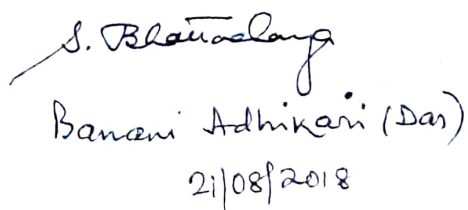 S. Bhattacharya
Banani Adhikari (Das)
21/08/2018